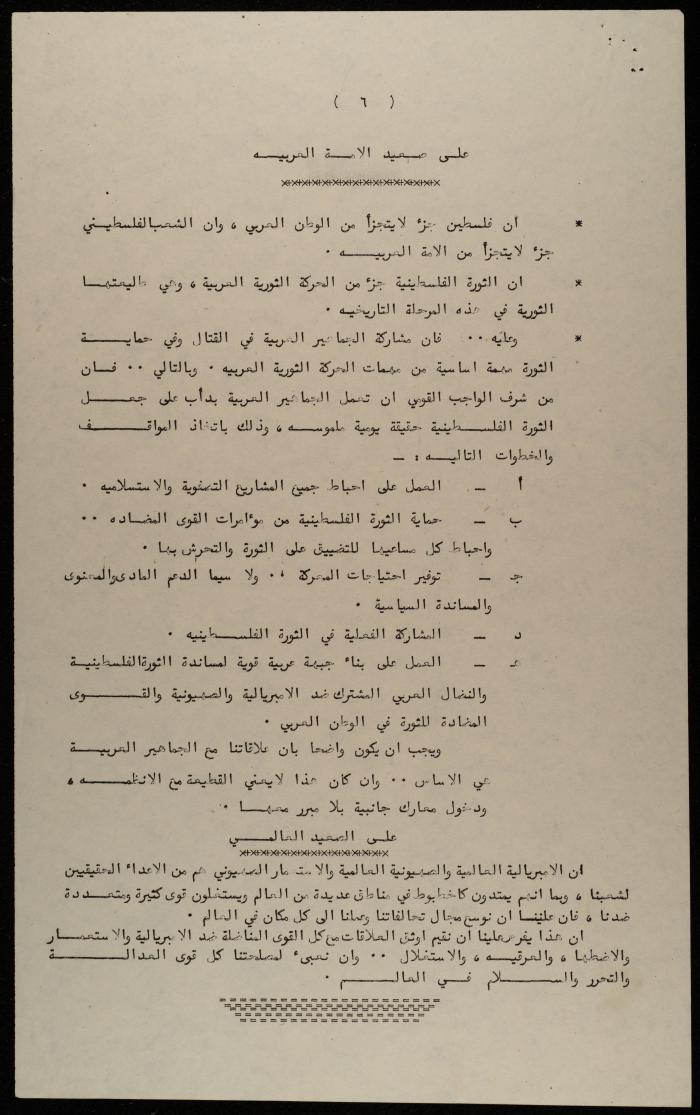 ( ٦ )
على صعيد الامة العربيه
* ان فلسطين جزء لايتجزأ من الوطن العربي ، وان الشعب الفلسطيني
جزء لايتجزأ من الامة العربيه ٠
* ان الثورة الفلسطينية جزء من الحركة الثورية العربية ، وهي طليعتها
الثورية في هذه المرحلة التاريخيه ٠
* وعليه ٠٠ فان مشاركة الجماهير العربية في القتال وفي حماية
الثورة مهمة اساسية من مهمات الحركة الثورية العربيه ٠ وبالتالي ٠٠ فان
من شرف الواجب القومي ان تعمل الجماهير العربية بدأب على جعل
الثورة الفلسطينية حقيقة يومية ملموسه ، وذلك باتخاذ المواقف
والخطوات التاليه : ــ
أ ــ العمل على احباط جميع المشاريع التصفوية والاستسلاميه ٠
ب ــ حماية الثورة الفلسطينية من مؤامرات القوى المضاده ٠٠
واحباط كل مساعيها للتضييق على الثورة والتحرش بها ٠
جـ ــ توفير احتياجات المعركة ٠٠ ولا سيما الدعم المادى والمعنوى
والمساندة السياسية ٠
د ــ المشاركة الفعلية في الثورة الفلسطينيه ٠
هـ ــ العمل على بناء جبهة عربية قوية لمساندة الثورة الفلسطينية
والنضال العربي المشترك ضد الامبريالية والصهيونية والقوى
المضادة للثورة في الوطن العربي ٠
ويجب ان يكون واضحا بان علاقاتنا مع الجماهير العربية
هي الاساس ٠٠ وان كان هذا لايعني القطيعة مع الانظمه ،
ودخول معارك جانبية بلا مبرر معها ٠
على الصعيد العالمي
ان الامبريالية العالمية والصهيونية العالمية والاستعمار الصهيوني هم من الاعداء الحقيقيين
لشعبنا ، وبما انهم يمتدون كاخطبوط في مناطق عديدة من العالم ويستغلون قوى كثيرة ومتعددة
ضدنا ، فان علينا ان نوسع مجال تحالفاتنا وعملنا الى كل مكان في العالم ٠
ان هذا يفرض علينا ان نقيم اوثق العلاقات مع كل القوى المناضلة ضد الامبريالية والاستعمار
والاضطهاد ، والعرقيه ، والاستغلال ٠٠ وان نعبىء لمصلحتنا كل قوى العدالة
والتحرر والسلام في العالم ٠